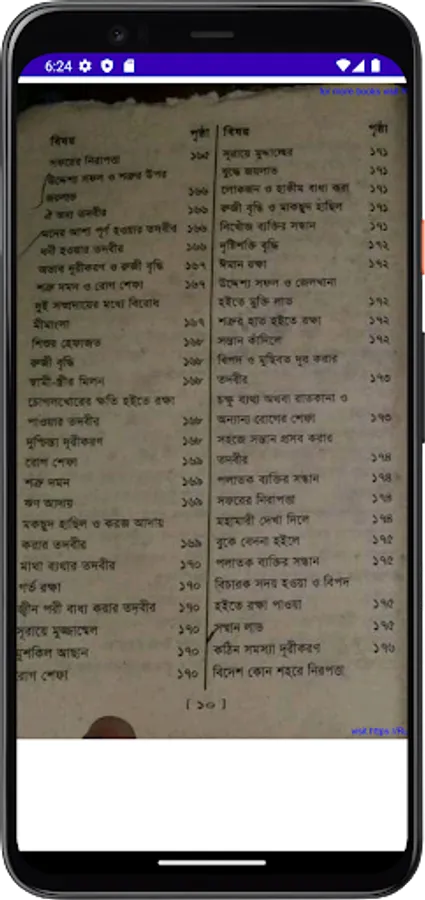 6:24
for more books visit
বিষয় পৃষ্ঠা
সফরের নিরাপত্তা ১৬৫
উদ্দেশ্য সফল ও শত্রুর উপর
জয়লাভ ১৬৬
ঐ অন্য তদবীর ১৬৬
মনের আশা পূর্ণ হওয়ার তদবীর ১৬৬
ধনী হওয়ার তদবীর ১৬৬
অভাব দূরীকরণ ও রুজী বৃদ্ধি ১৬৭
শত্রু দমন ও রোগ শেফা ১৬৭
দুই সম্প্রদায়ের মধ্যে বিরোধ
মীমাংসা ১৬৭
শিশুর হেফাজত ১৬৮
রুজী বৃদ্ধি ১৬৮
স্বামী-স্ত্রীর মিলন ১৬৮
চোগলখোরের ক্ষতি হইতে রক্ষা
পাওয়ার তদবীর ১৬৮
দুশ্চিন্তা দূরীকরণ ১৬৮
রোগ শেফা ১৬৯
শত্রু দমন ১৬৯
ঋণ আদায় ১৬৯
মকছুদ হাছিল ও করজ আদায়
করার তদবীর ১৬৯
মাথা ব্যথার তদবীর ১৭০
গর্ভ রক্ষা ১৭০
জ্বীন পরী বাধ্য করার তদবীর ১৭০
সূরায়ে মুজ্জাম্মেল ১৭০
মুশকিল আছান ১৭০
রোগ শেফা ১৭০
বিষয় পৃষ্ঠা
সূরায়ে মুদ্দাচ্ছের ১৭১
যুদ্ধে জয়লাভ ১৭১
লোকজন ও হাকীম বাধ্য করা ১৭১
রুজী বৃদ্ধি ও মাকছুদ হাছিল ১৭১
নিখোঁজ ব্যক্তির সন্ধান ১৭১
দৃষ্টিশক্তি বৃদ্ধি ১৭২
ঈমান রক্ষা ১৭২
উদ্দেশ্য সফল ও জেলখানা
হইতে মুক্তি লাভ ১৭২
শত্রুর হাত হইতে রক্ষা ১৭২
সন্তান কাঁদিলে ১৭২
বিপদ ও মুছিবত দূর করার
তদবীর ১৭৩
চক্ষু ব্যথা অথবা রাতকানা ও
অন্যান্য রোগের শেফা ১৭৩
সহজে সন্তান প্রসব করার
তদবীর ১৭৪
পলাতক ব্যক্তির সন্ধান ১৭৪
সফরের নিরাপত্তা ১৭৪
মহামারী দেখা দিলে ১৭৪
বুকে বেদনা হইলে ১৭৫
পলাতক ব্যক্তির সন্ধান ১৭৫
বিচারক সদয় হওয়া ও বিপদ
হইতে রক্ষা পাওয়া ১৭৫
সম্মান লাভ ১৭৫
কঠিন সমস্যা দূরীকরণ ১৭৬
বিদেশ কোন শহরে নিরপত্তা
[ ১০ ]
visit